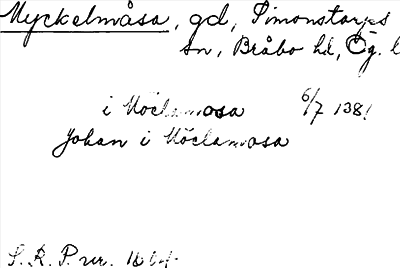 Myckelmåsa, gd, Simonstorps
sn, Bråbo hd, Ög. l
i Möclamosa 6/7 1381
Johan i Möclamosa
S. R. P. nr. 1664